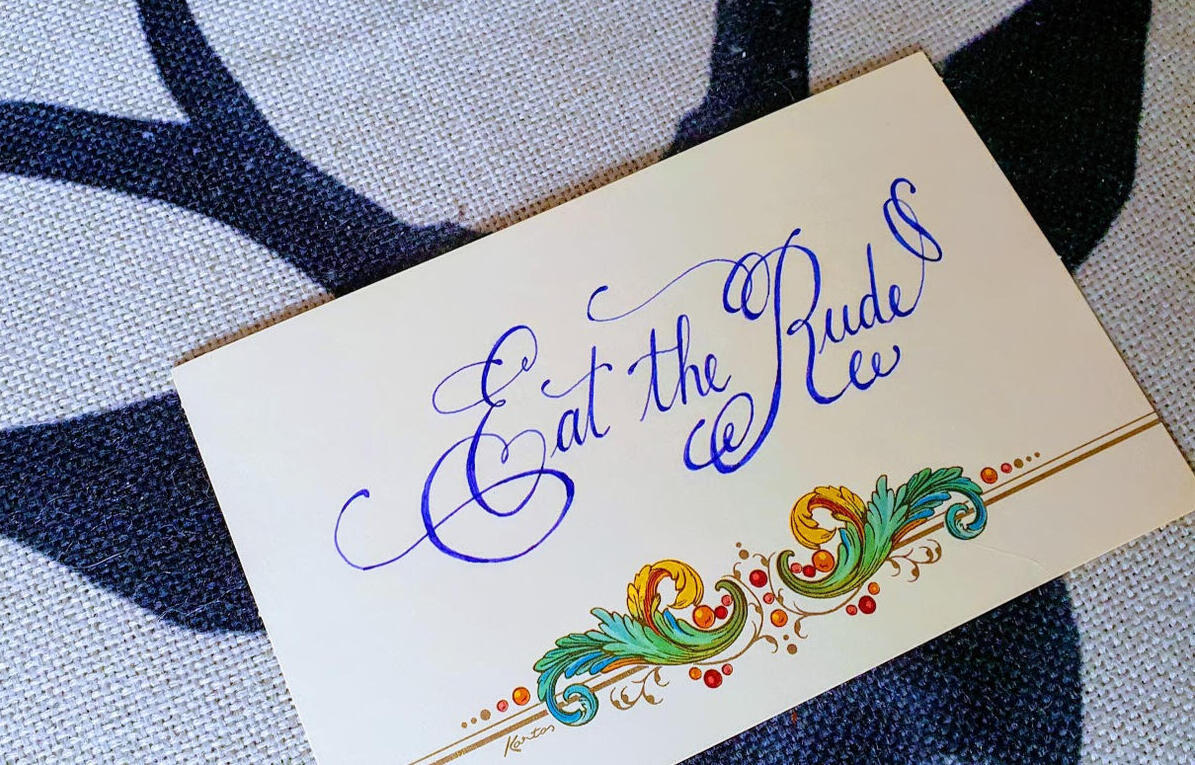 Eat the Rude
Kantos